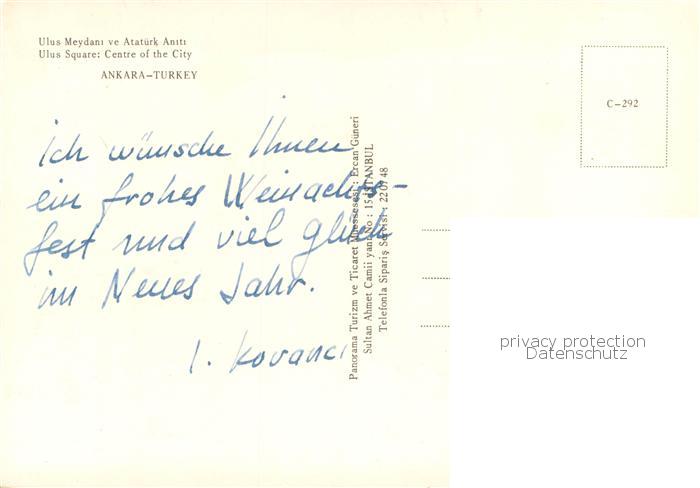 Ulus Meydanı ve Atatürk Anıtı
Ulus Square: Centre of the City
ANKARA–TURKEY
C–292
Ich wünsche Ihnen
ein frohes Weinachts-
fest und viel Glück
im Neues Jahr.
I. Kovancı
Panorama Turizm ve Ticaret Müessesesi : Ercan Güneri
Sultan Ahmet Camii yanı No : 15 İSTANBUL
Telefonla Sipariş Servisi : 22 07 48
privacy protection
Datenschutz